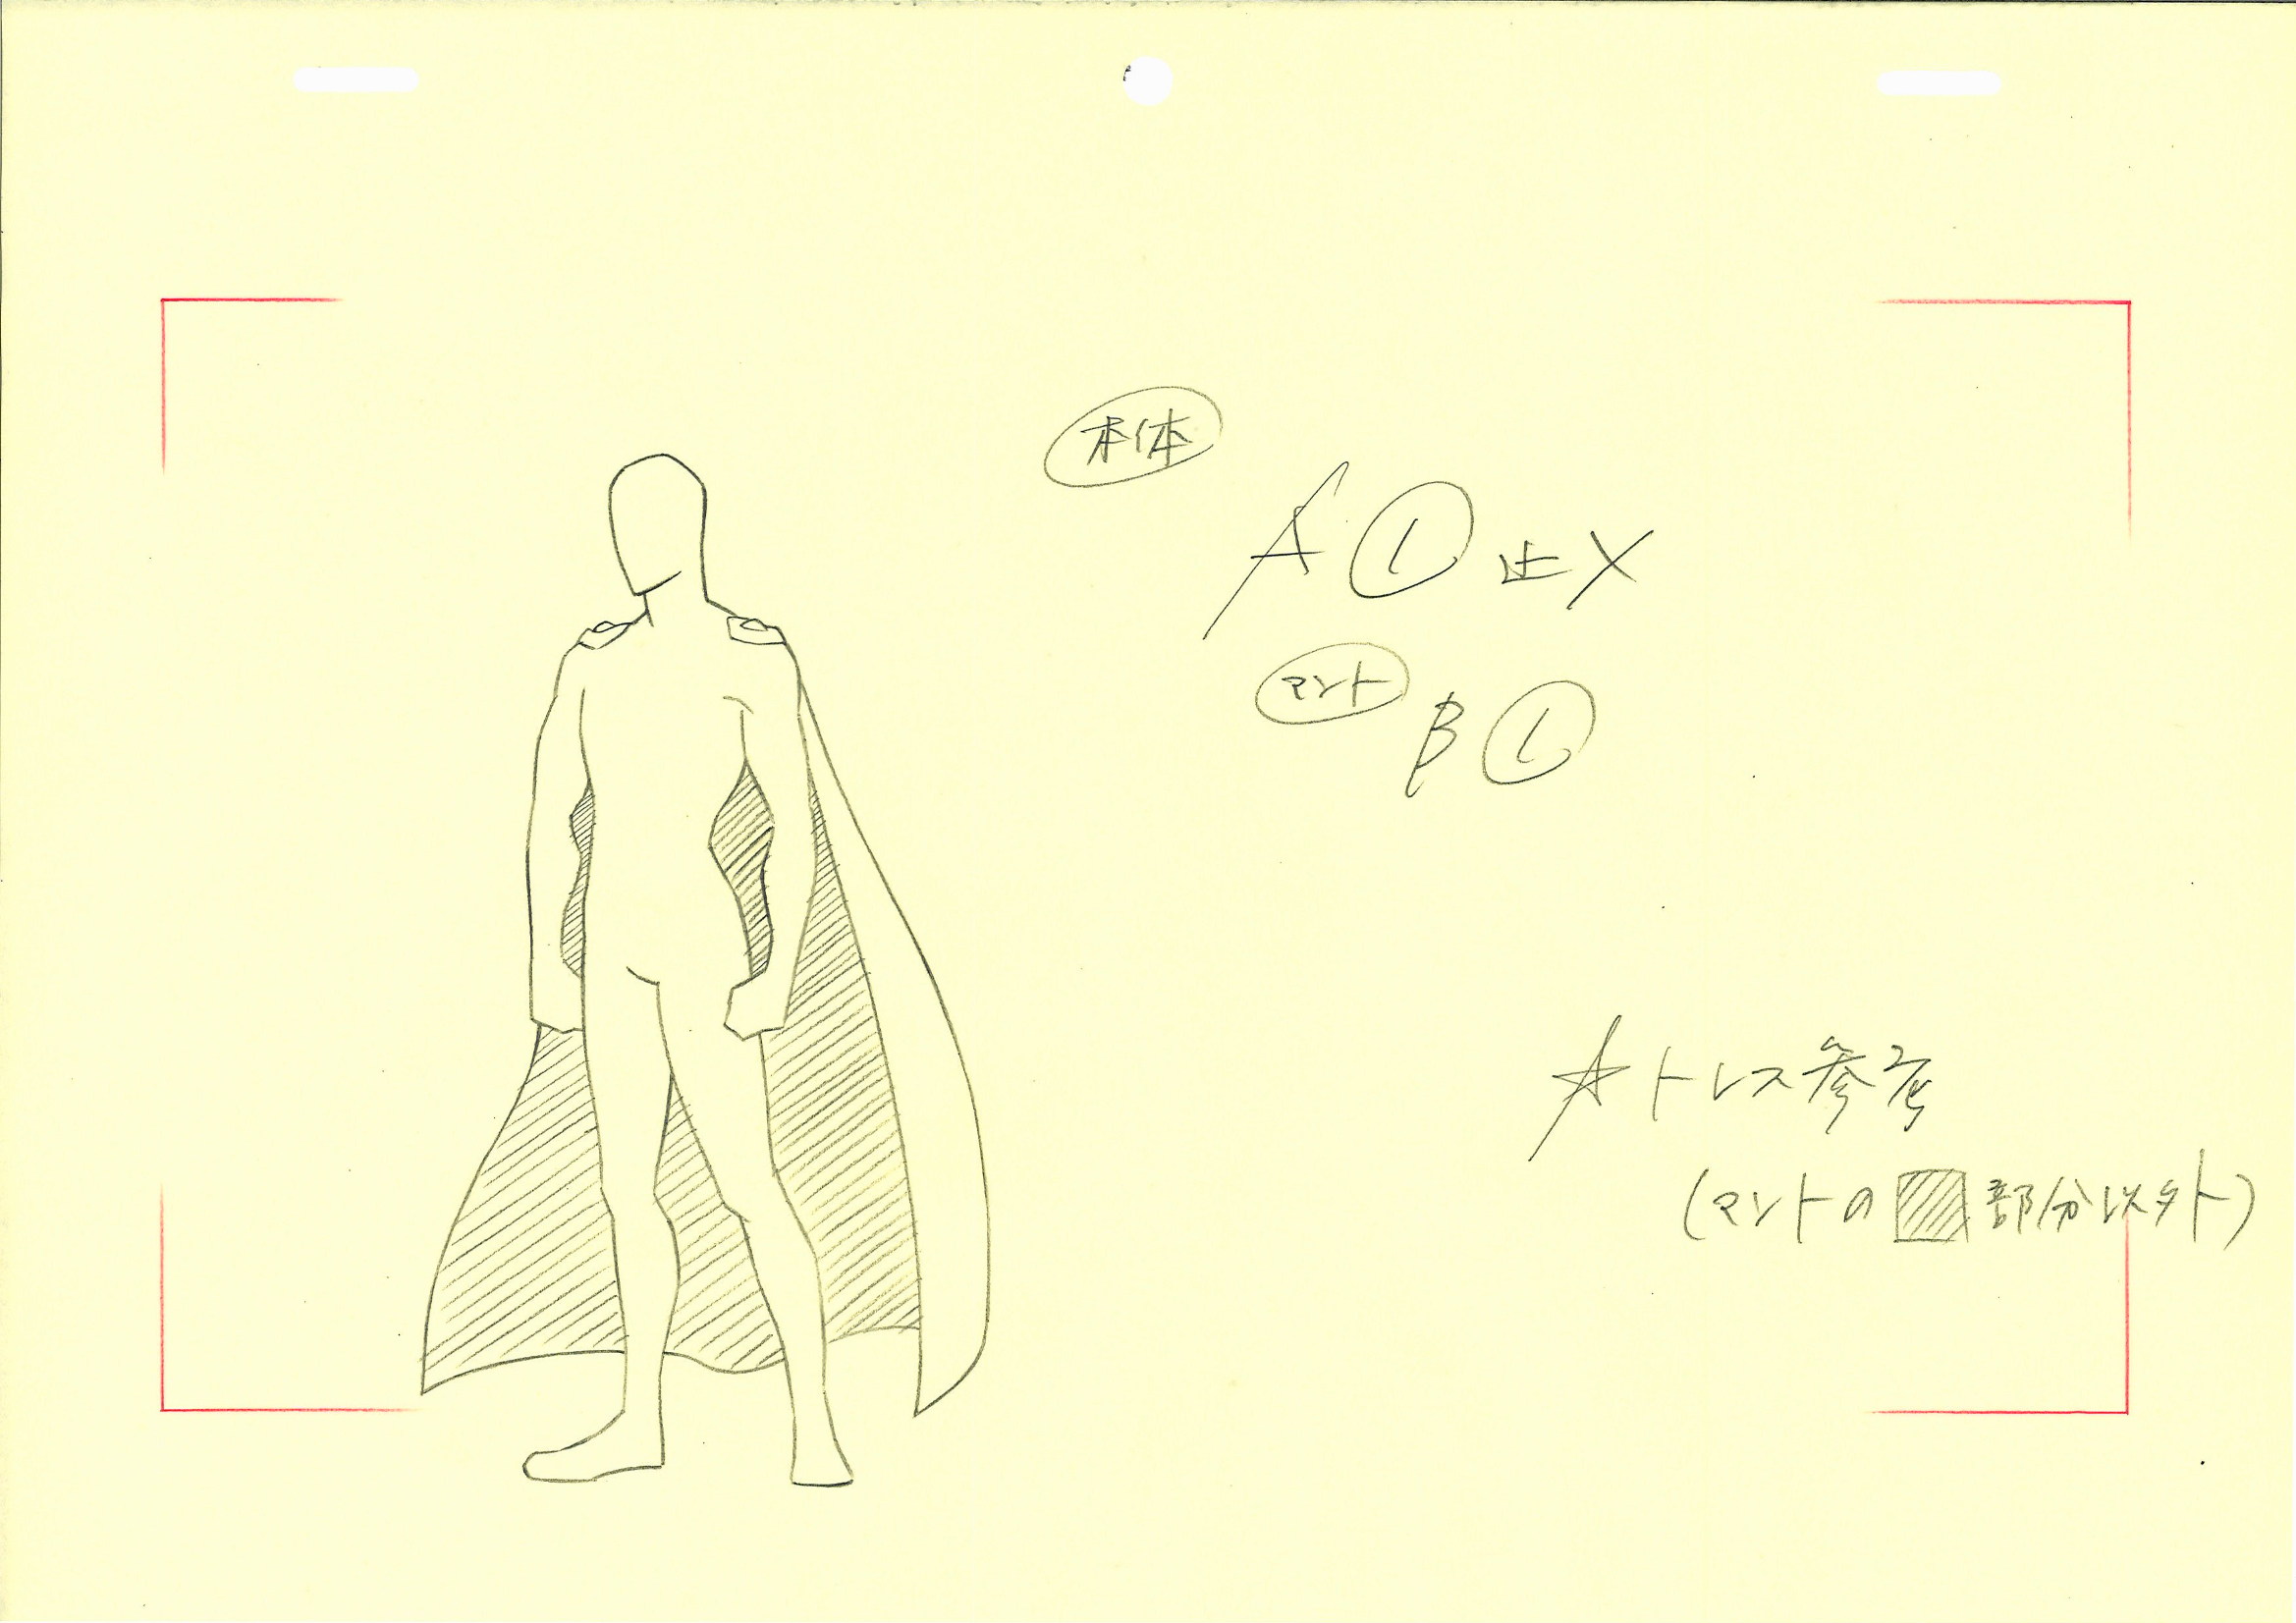 本体
A① 止メ
マント
B①
☆トレス参考
(マントの 部分以外)